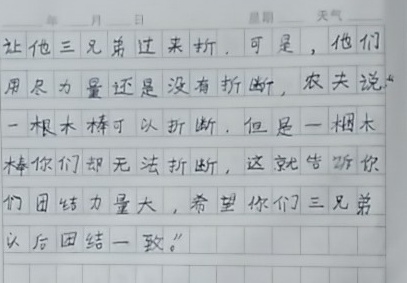 年 月 日 星期 天气
让他三兄弟过来折．可是，他们
用尽力量还是没有折断，农夫说“
一根木棒可以折断．但是一梱木
棒你们却无法折断，这就告诉你
们团结力量大，希望你们三兄弟
以后团结一致。”